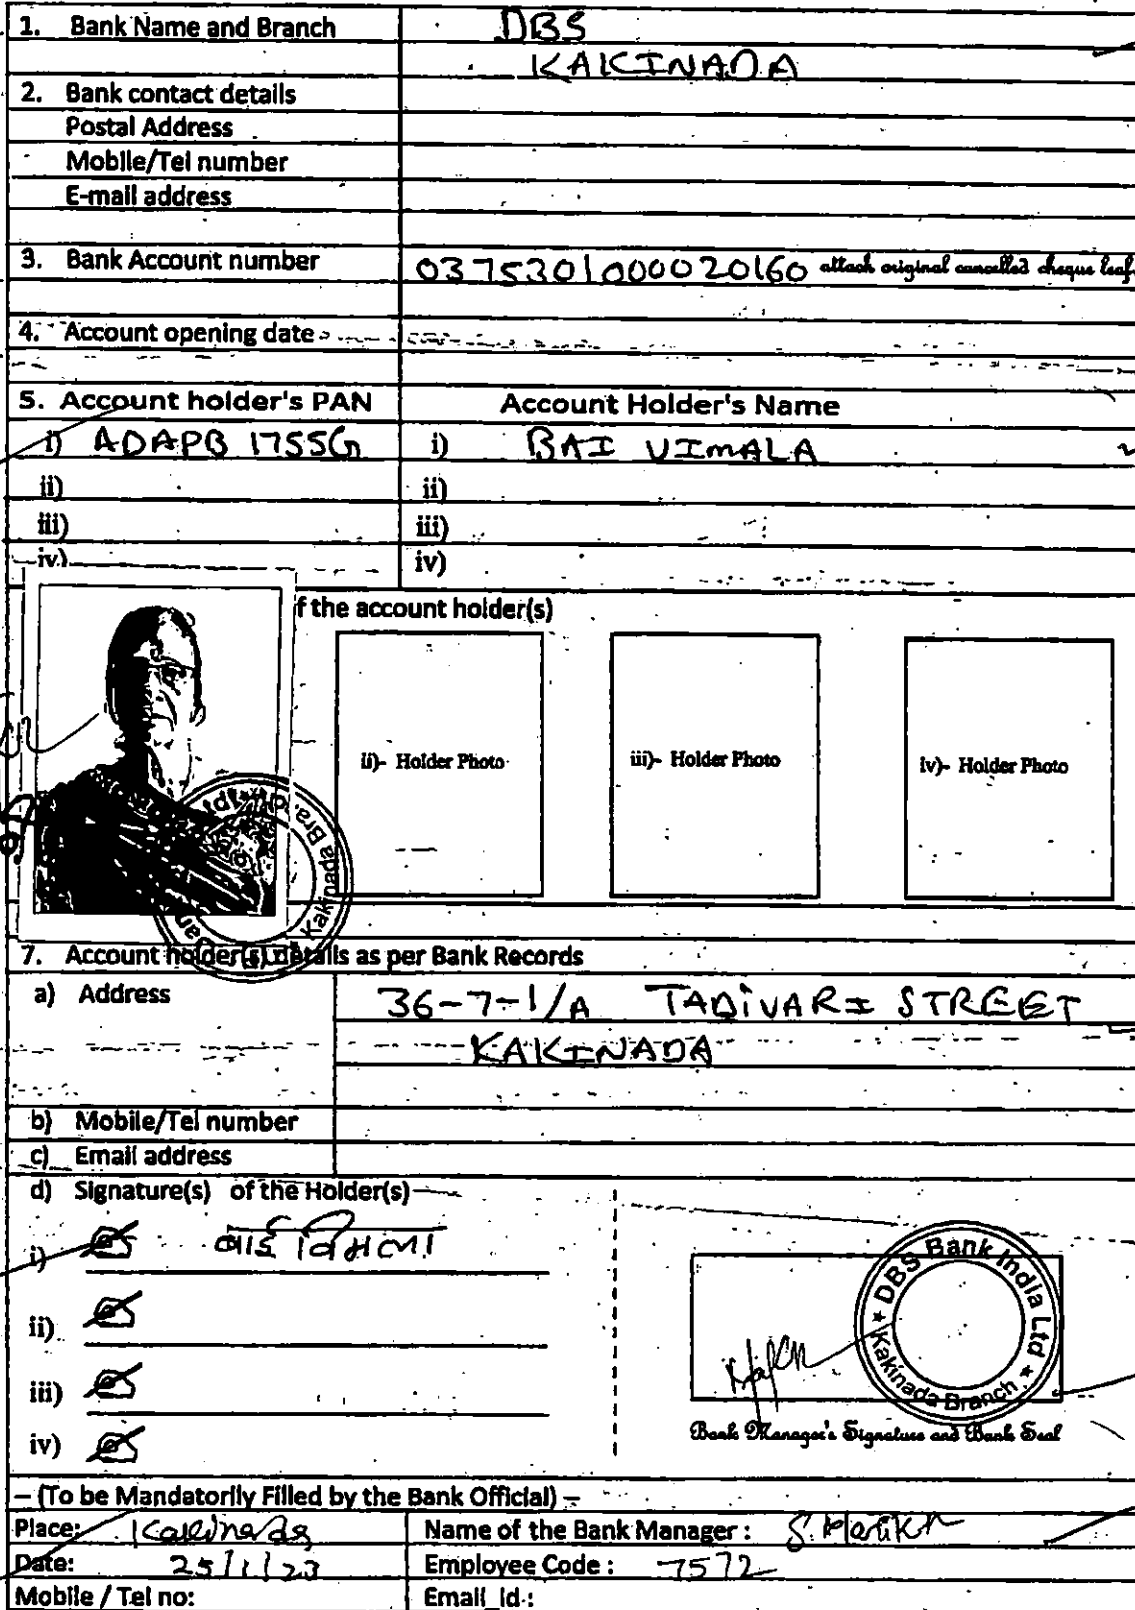 1. Bank Name and Branch DBS
KAKINADA
2. Bank contact details
Postal Address
Mobile/Tel number
E-mail address
3. Bank Account number 0375301000020160 attach original cancelled cheque leaf
4. Account opening date
5. Account holder's PAN Account Holder's Name
i) ADAPB 1755G i) BAI VIMALA
ii) ii)
iii) iii)
iv) iv)
f the account holder(s)
ii)- Holder Photo iii)- Holder Photo iv)- Holder Photo
Kakinada Bra
7. Account holder(s) details as per Bank Records
a) Address 36-7-1/A TADIVARI STREET
KAKINADA
b) Mobile/Tel number
c) Email address
d) Signature(s) of the Holder(s)
i) बाई विमला
ii)
iii)
iv)
★ DBS Bank India Ltd ★ Kakinada Branch
Bank Manager's Signature and Bank Seal
– (To be Mandatorily Filled by the Bank Official) –
Place: Kakinada Name of the Bank Manager :
Date: 25/1/23 Employee Code : 7572
Mobile / Tel no: Email_id :